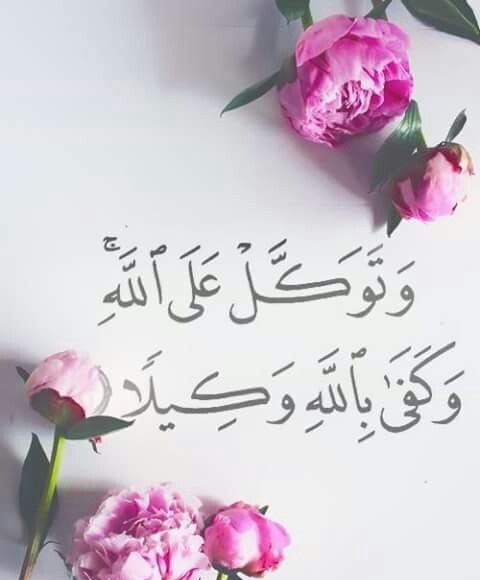 وَتَوَكَّلۡ عَلَى ٱللَّهِۚ
وَكَفَىٰ بِٱللَّهِ وَكِيلًا